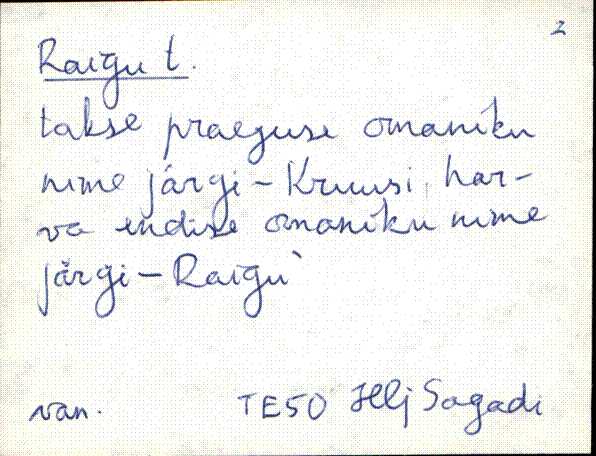 2
Raigu t.
takse praeguse omaniku
nime järgi - Kruusi, har-
va endise omaniku nime
järgi - Raigu`
van. TE50 Hlj Sagadi